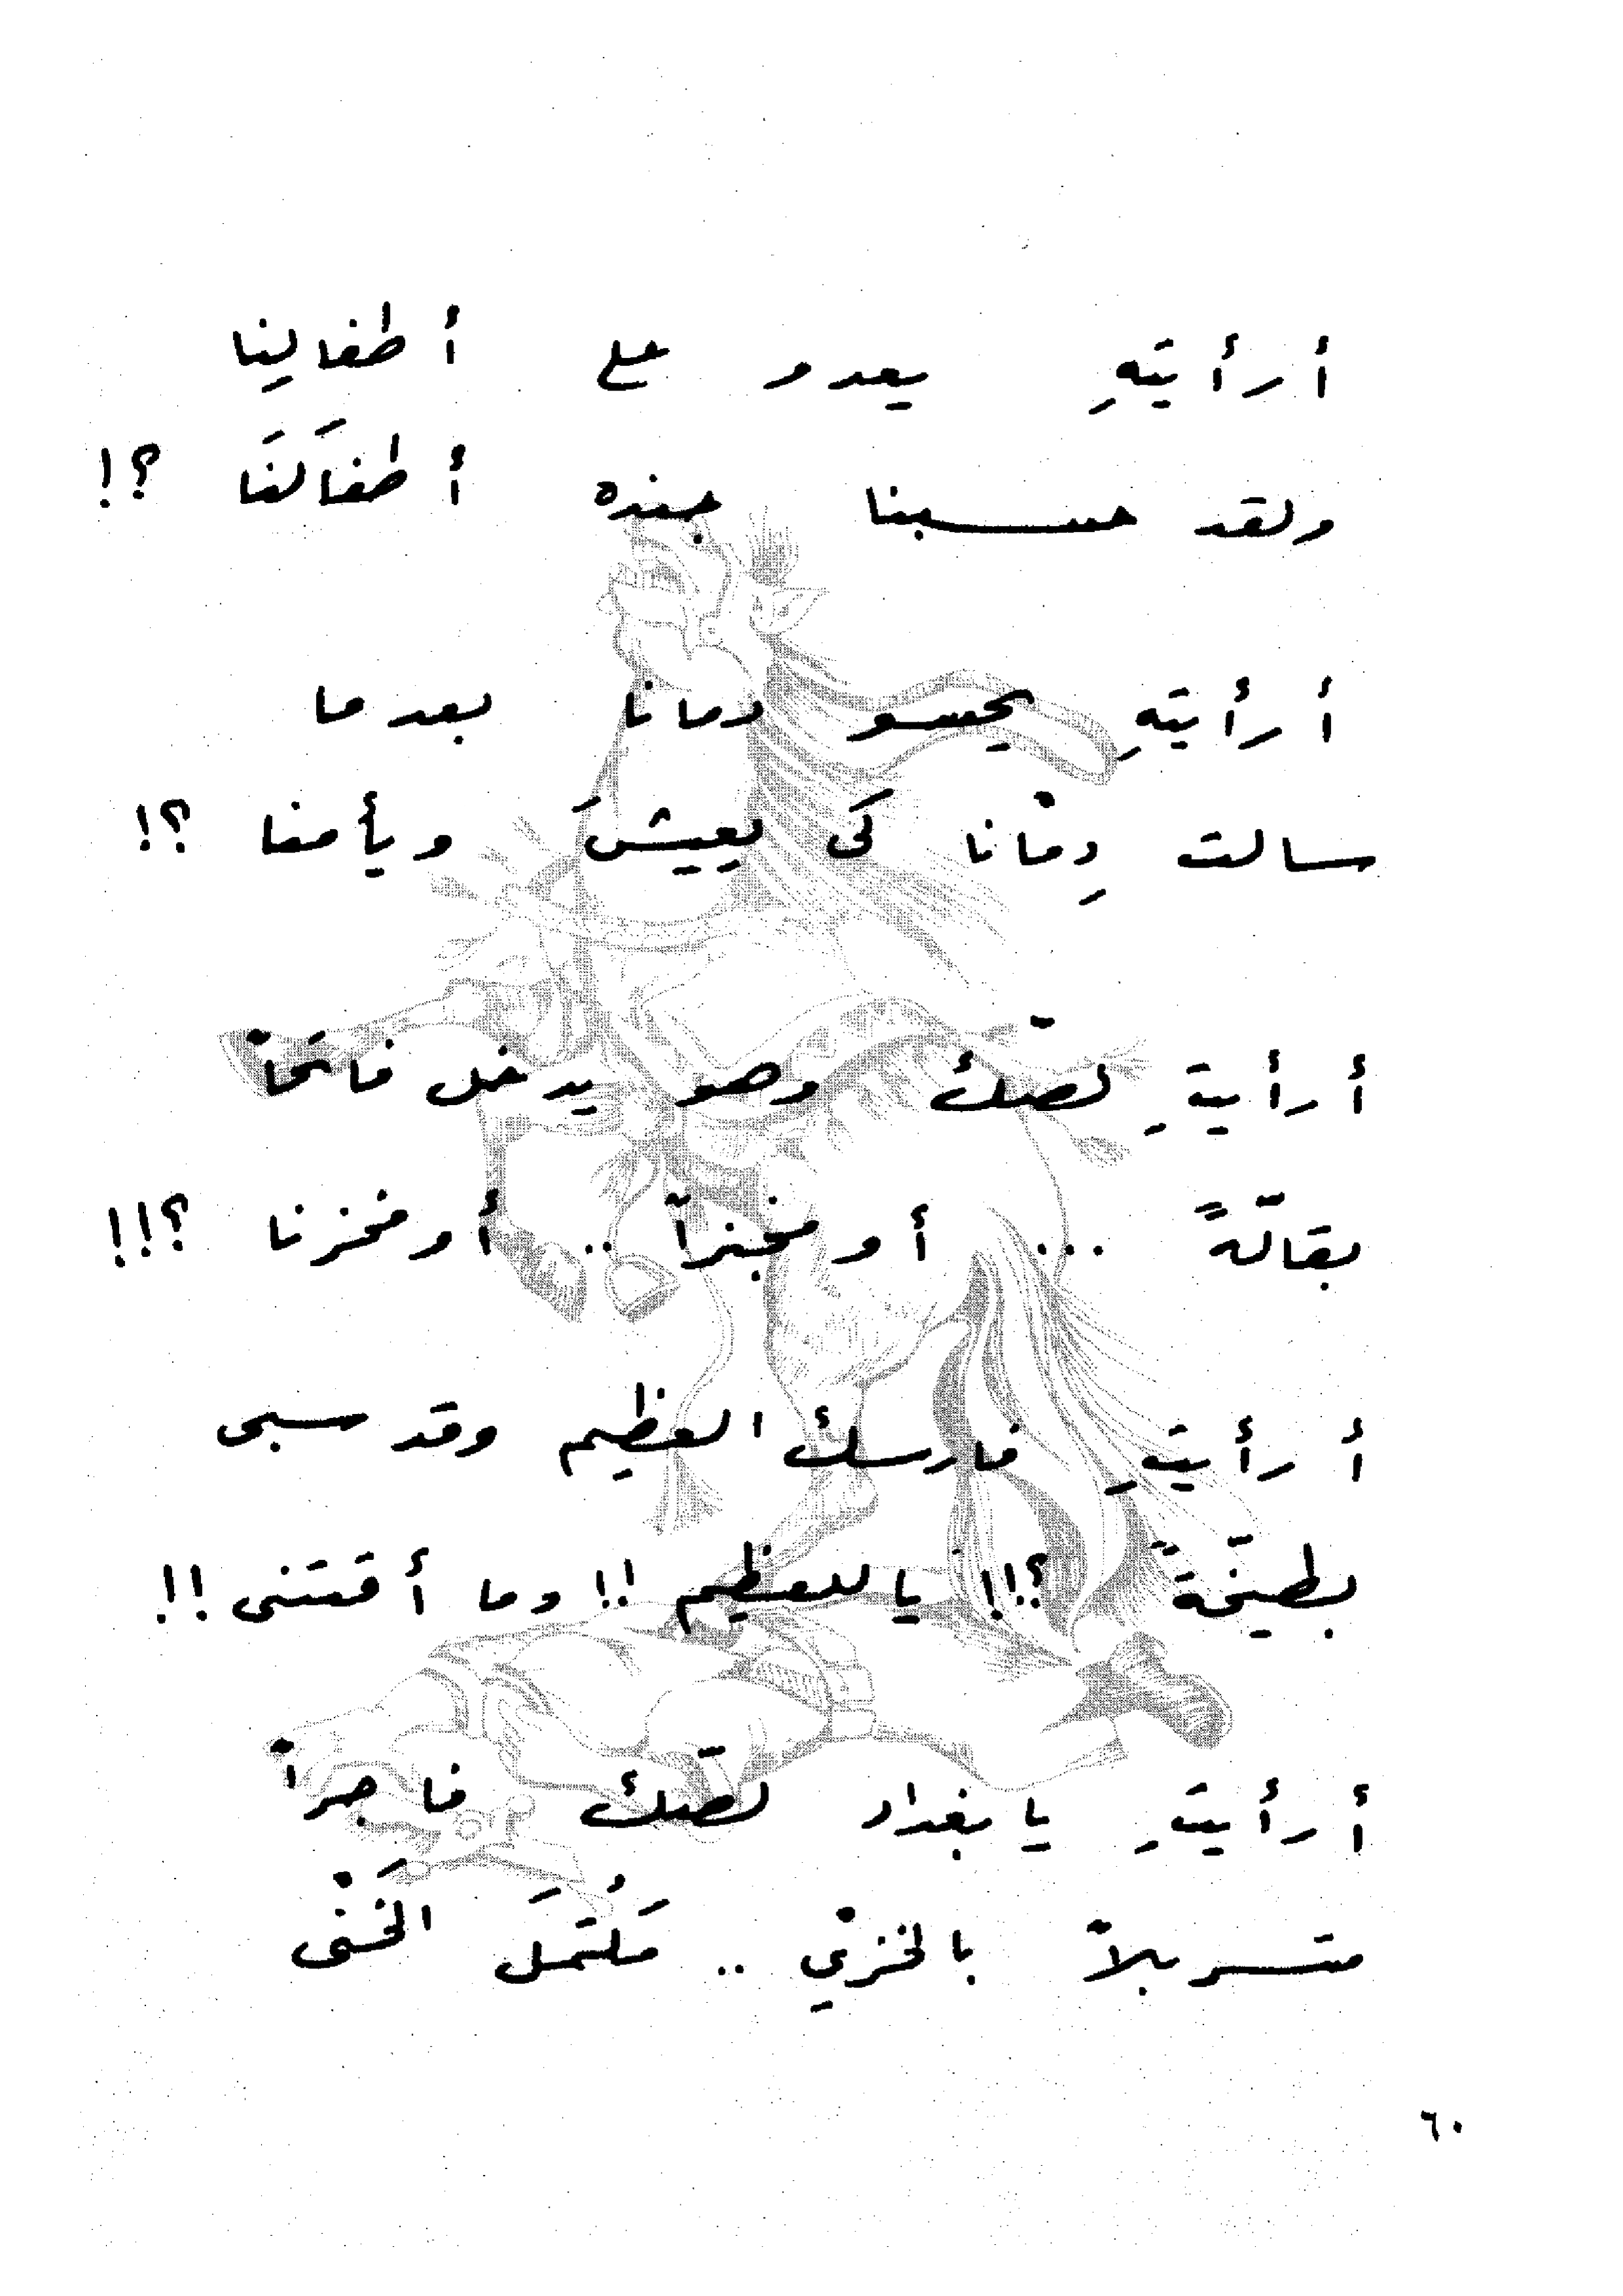 أرأيتِهِ يعدو على أطفالِنا
ولقد حسبنا جنده أطفالَنَا ؟!
أرأيتِهِ يحسو دمانا بعدما
سالت دِمانا كَى يعيشَ ويأمنا ؟!
أرأيتِ لصّك وهو يدخل فاتحاً
بقالّةً ... أو مخبزاً .. أو مخزنا ؟!!
أرأيتِ فارسك العظيم وقد سبى
بطيخّةً ؟!! يا للعظيم !! وما أقتنى !!
أرأيتِ يا بغداد لصّك فاجراً
متسربلاً بالخزي .. مَكُتمَلَ الخَنى
٦٠